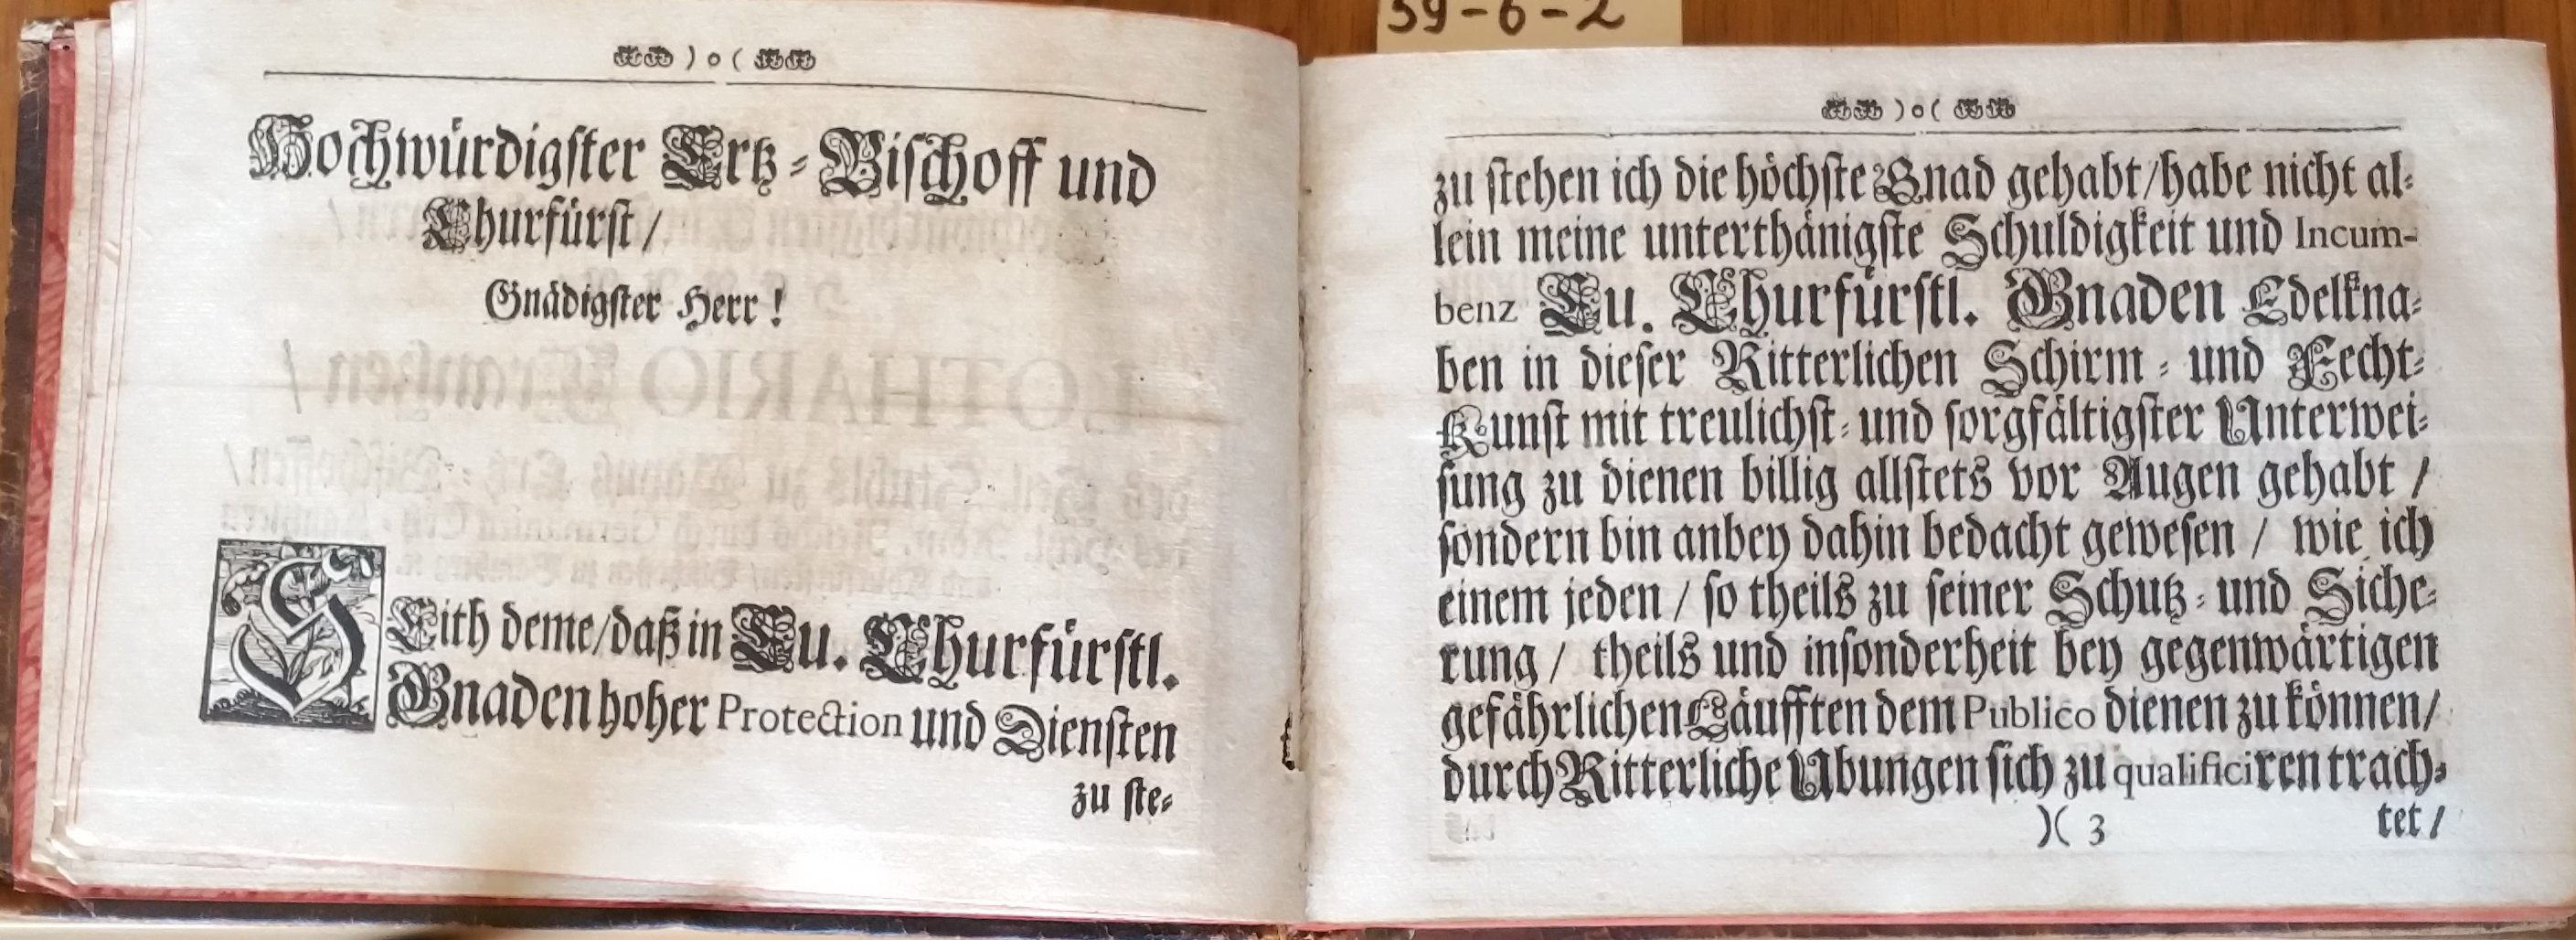 ) o (
Hochwürdigster Ertz-Bischoff und
Churfürst /
Gnädigster Herr!
SEith deme / daß in Eu. Churfürstl.
Gnaden hoher Protection und Diensten
zu ste-
39-6-2
) o (
zu stehen ich die höchste Gnad gehabt / habe nicht al-
lein meine unterthänigste Schuldigkeit und Incum-
benz Eu. Churfürstl. Gnaden Edelkna-
ben in dieser Ritterlichen Schirm- und Fecht-
Kunst mit treulichst- und sorgfältigster Unterwei-
sung zu dienen billig allstets vor Augen gehabt /
sondern bin anbey dahin bedacht gewesen / wie ich
einem jeden / so theils zu seiner Schutz- und Siche-
rung / theils und insonderheit bey gegenwärtigen
gefährlichen Läufften dem Publico dienen zu können /
durch Ritterliche Ubungen sich zu qualificiren trach-
)( 3 tet /